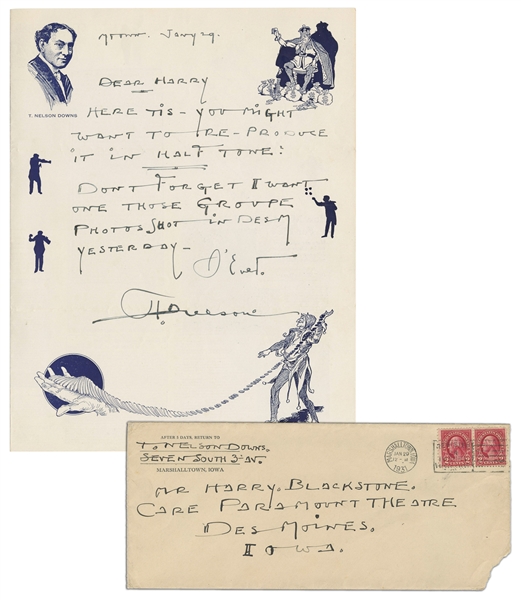 Jany 29.
T. NELSON DOWNS
DEAR HARRY
HERE TIS - YOU MIGHT
WANT TO RE-PRODUCE
IT IN HALF TONE:
DON'T FORGET I WANT
ONE THOSE GROUPE
PHOTOS SHOT IN DESM
YESTERDAY -
D'Ever.
T. Nelson
AFTER 5 DAYS, RETURN TO
T. NELSON DOWNS.
SEVEN SOUTH 3RD AV.
MARSHALLTOWN, IOWA
MARSHALLTOWN
JAN 29
1931
MR HARRY. BLACKSTONE.
CARE PARAMOUNT THEATRE
DES MOINES.
IOWA.